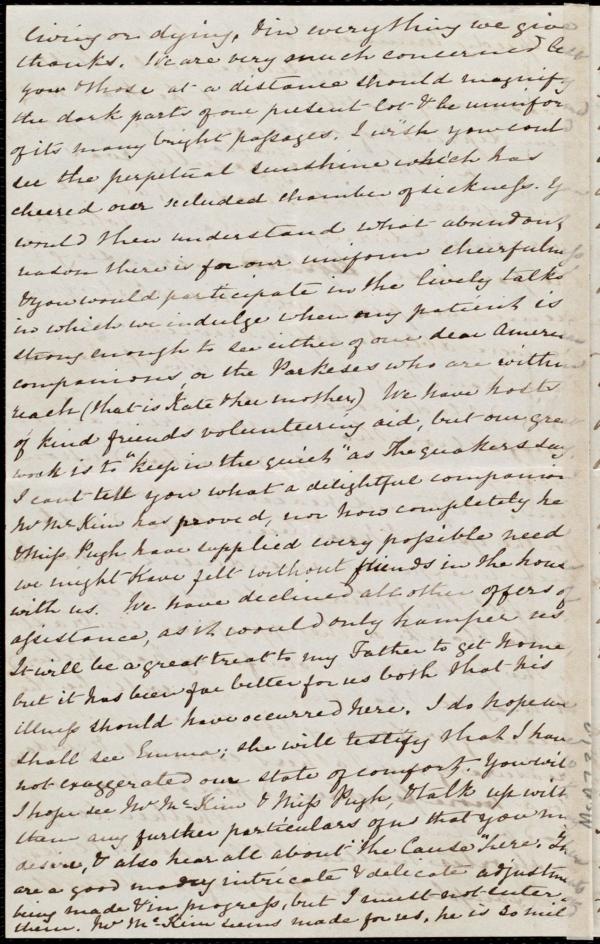 living or dying, & in everything we give
thanks. We are very much concerned les
you & those at a distance should magnify
the dark parts of our present lot & be unin for
of its many bright passages. I wish you coul
see the perpetual sunshine which has
cheered our secluded chamber of sickness. Y
would then understand what abundant
reason there is for our uniform cheerfuln
& you would participate in the lively talks
in which we indulge when my patient is
strong enough to see either of our dear Ameri
companions, or the Parkeses who are within
reach (that is Kate & her mother) We have hosts
of kind friends volunteering aid, but our grea
work is to "keep in the quiet" as the quakers say,
I cant tell you what a delightful companion
Mr McKim has proved, nor how completely he
& Miss Pugh have supplied every possible need
we might have felt without friends in the house
with us. We have declined all other offers of
assistance, as it would only hamper us
It will be a great treat to my Father to get home
but it has been far better for us both that his
illness should have occurred here. I do hope we
shall see Emma; she will testify that I have
not exaggerated our state of comfort. You wil
I hope see Mr McKim & Miss Pugh, & talk up with
them any further particulars of us that you m
desire, & also hear all about "the Cause" here. Th
are a good many intricate & delicate adjustm
being made & in progress, but I must not enter
them. Mr McKim seems made for us, he is so mil